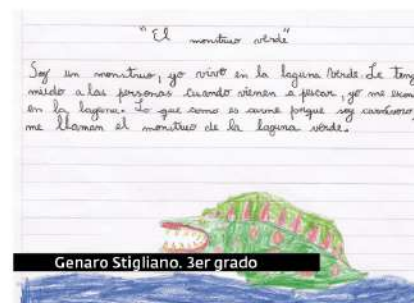 "El monstruo verde"
Soy un monstruo, yo vivo en la laguna Verde. Le teng
miedo a las personas cuando vienen a pescar, yo me escon
en la laguna. Lo que como es carne porque soy carnívoro,
me llaman el monstruo de la laguna verde.
Genaro Stigliano. 3er grado